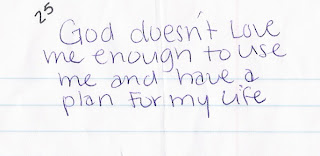 25
God doesn't Love
me enough to use
me and have a
plan for my life